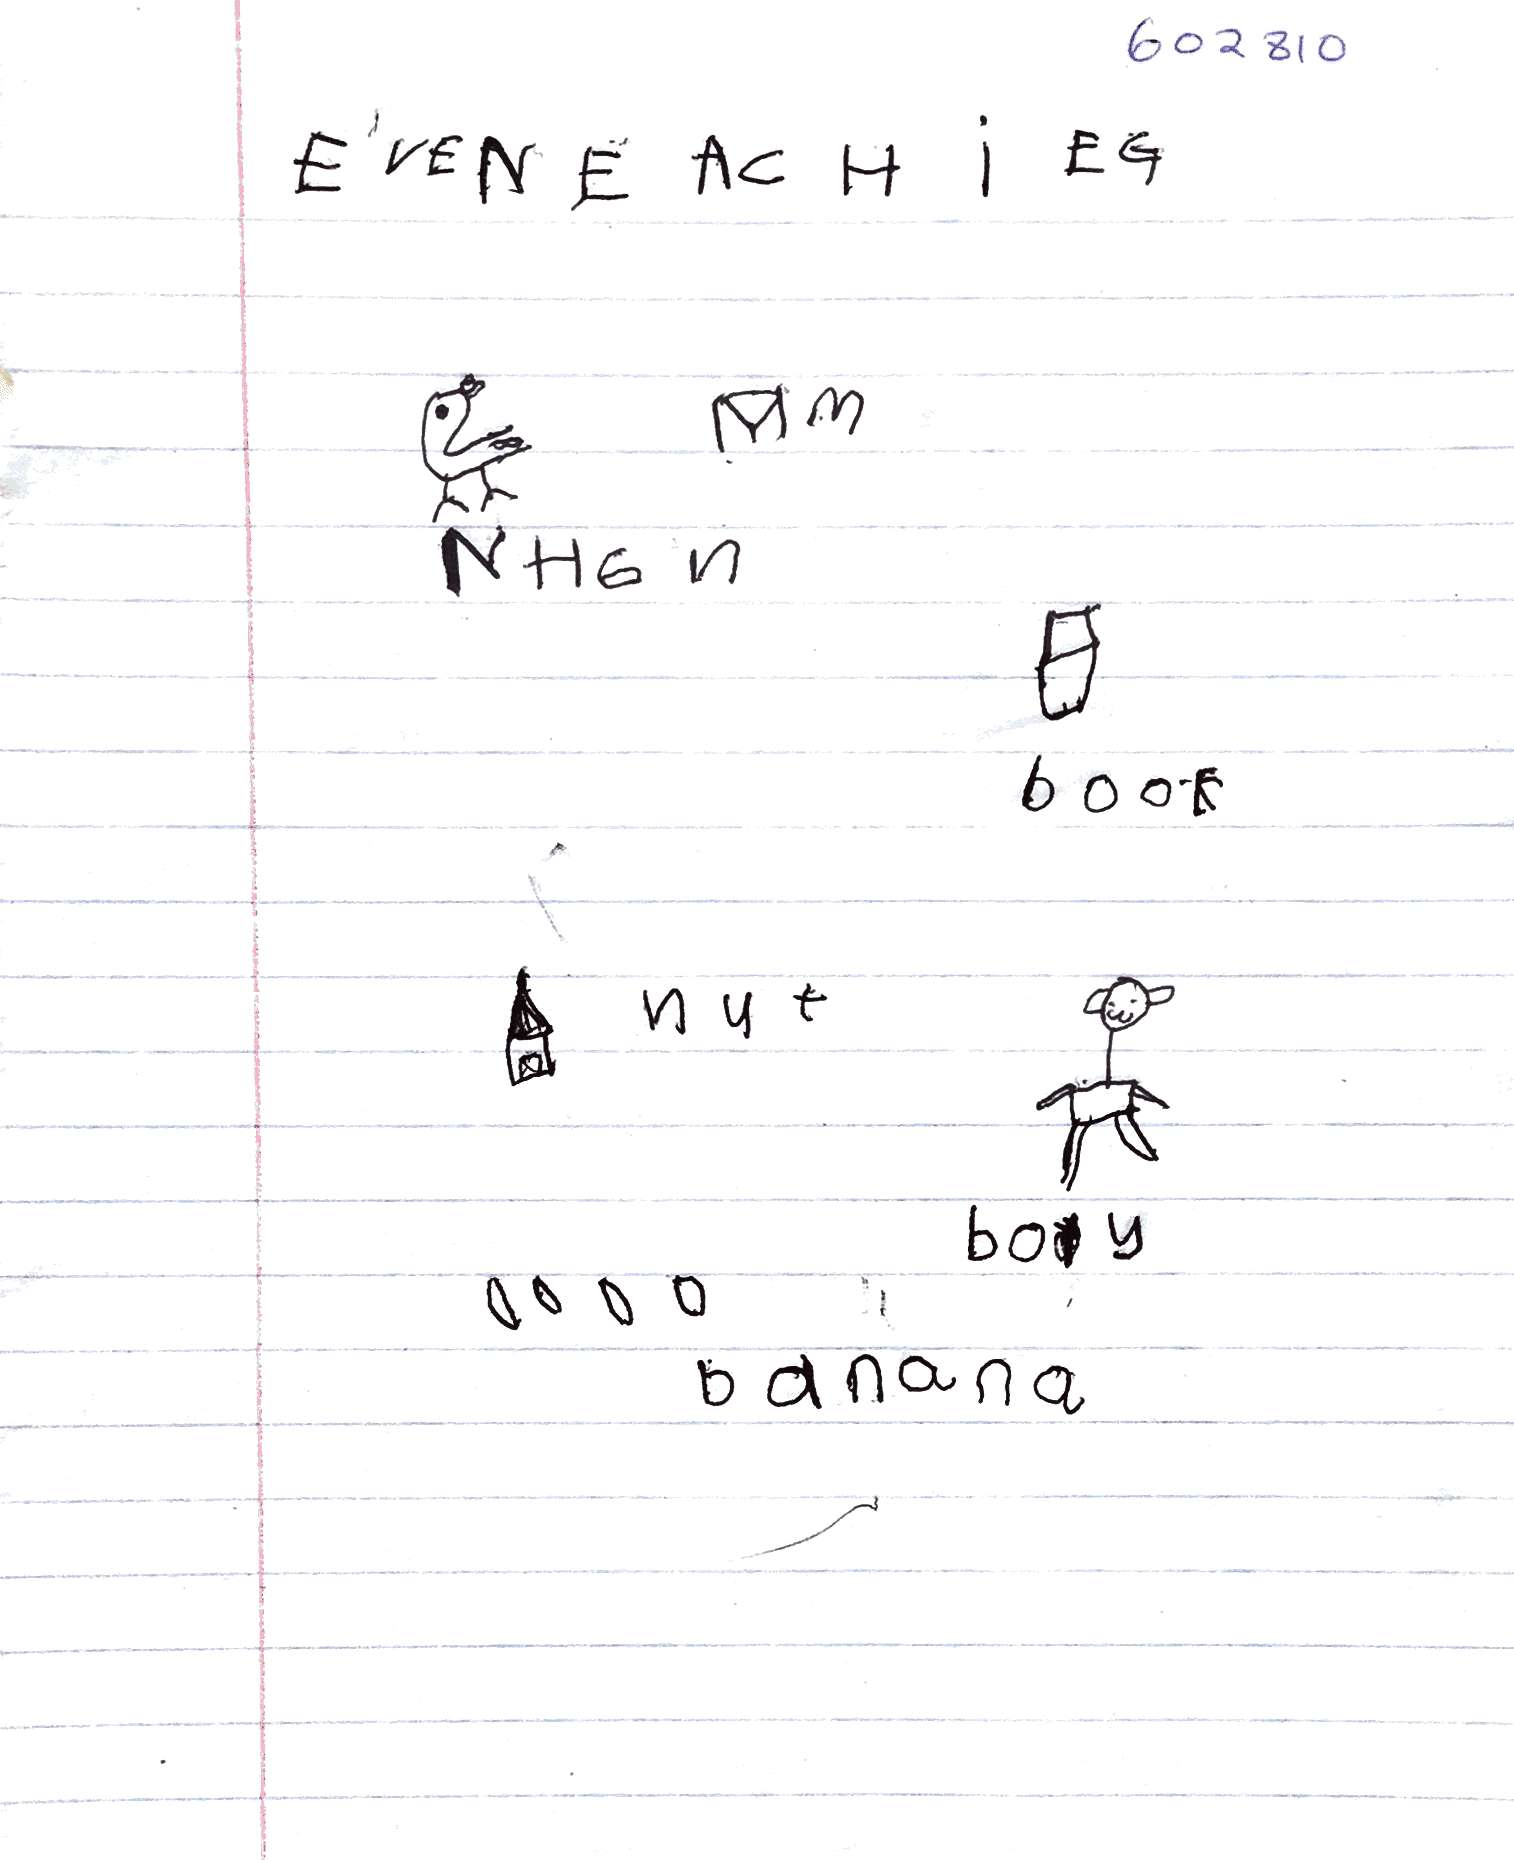 602810
E'VENE ACHiEG
m
NHGn
book
nyt
body
banana